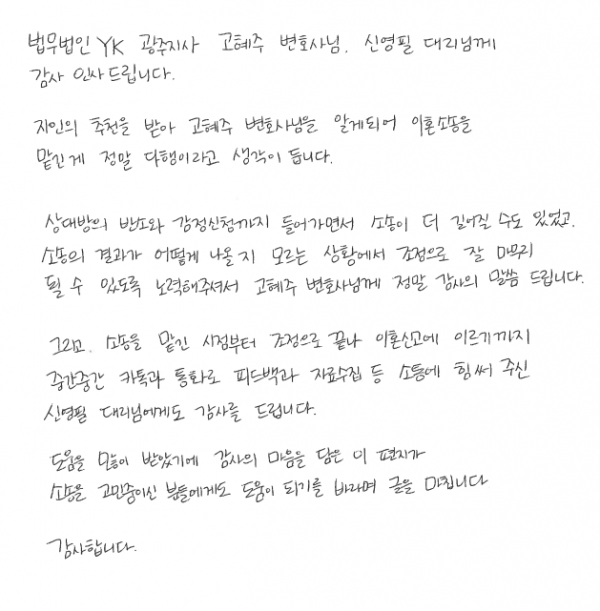 법무법인 YK 광주지사 고혜주 변호사님, 신영필 대리님께
감사 인사드립니다.
지인의 추천을 받아 고혜주 변호사님을 알게되어 이혼소송을
맡긴게 정말 다행이라고 생각이 듭니다.
상대방의 반소와 감정신청까지 들어가면서 소송이 더 길어질 수도 있었고,
소송의 결과가 어떻게 나올지 모르는 상황에서 조정으로 잘 마무리
될 수 있도록 노력해주셔서 고혜주 변호사님께 정말 감사의 말씀 드립니다.
그리고, 소송을 맡긴 시점부터 조정으로 끝나 이혼신고에 이르기까지
중간중간 카톡과 통화로 피드백과 자료수집 등 소통에 힘써 주신
신영필 대리님에게도 감사를 드립니다.
도움을 많이 받았기에 감사의 마음을 담은 이 편지가
소송을 고민중이신 분들에게도 도움이 되기를 바라며 글을 마칩니다
감사합니다.